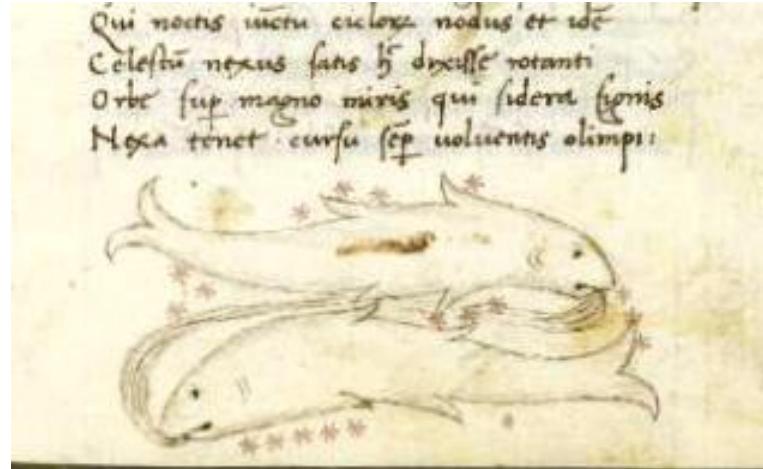 Qui noctis iũctu ciclorꝝ nodus et idẽ
Celestũ nexus satis hͨ dixisse rotanti
Orbe suꝑ magno miris qui sidera signis
Nexa tenet · cursu sẽꝑ uoluentis olimpi: